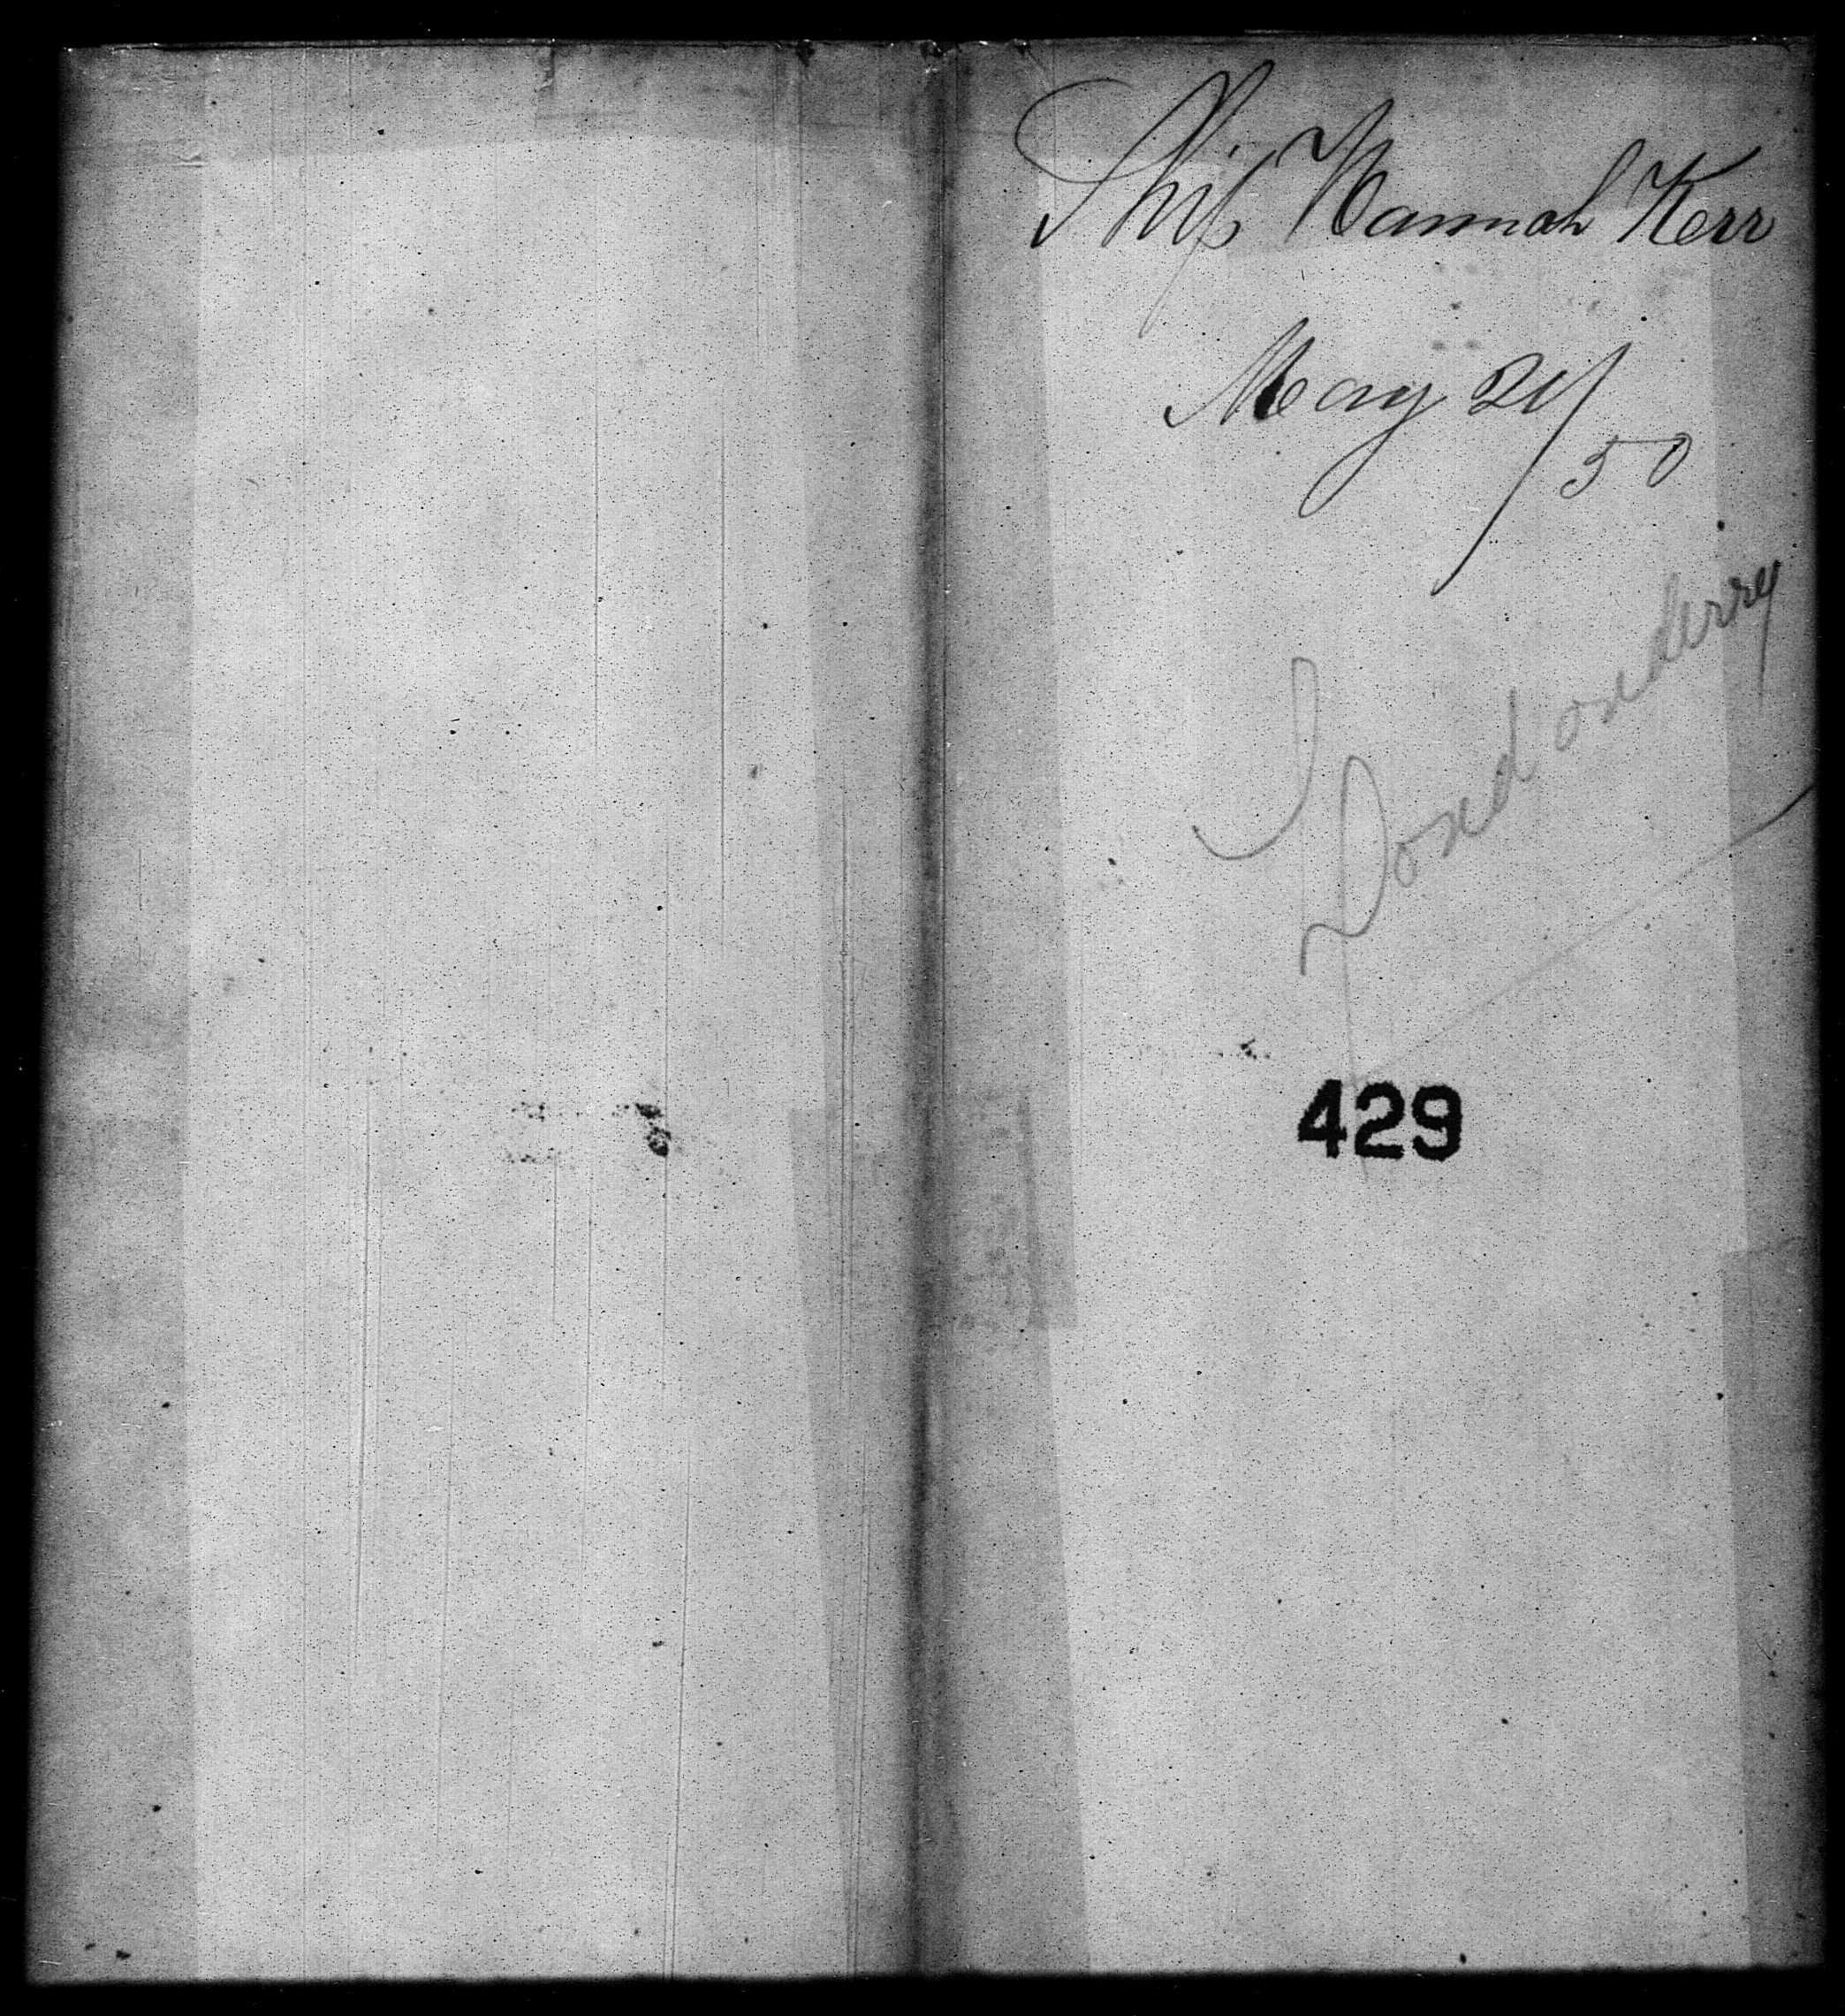 Ship Hannah Kerr
May 21/50
Londonderry
429